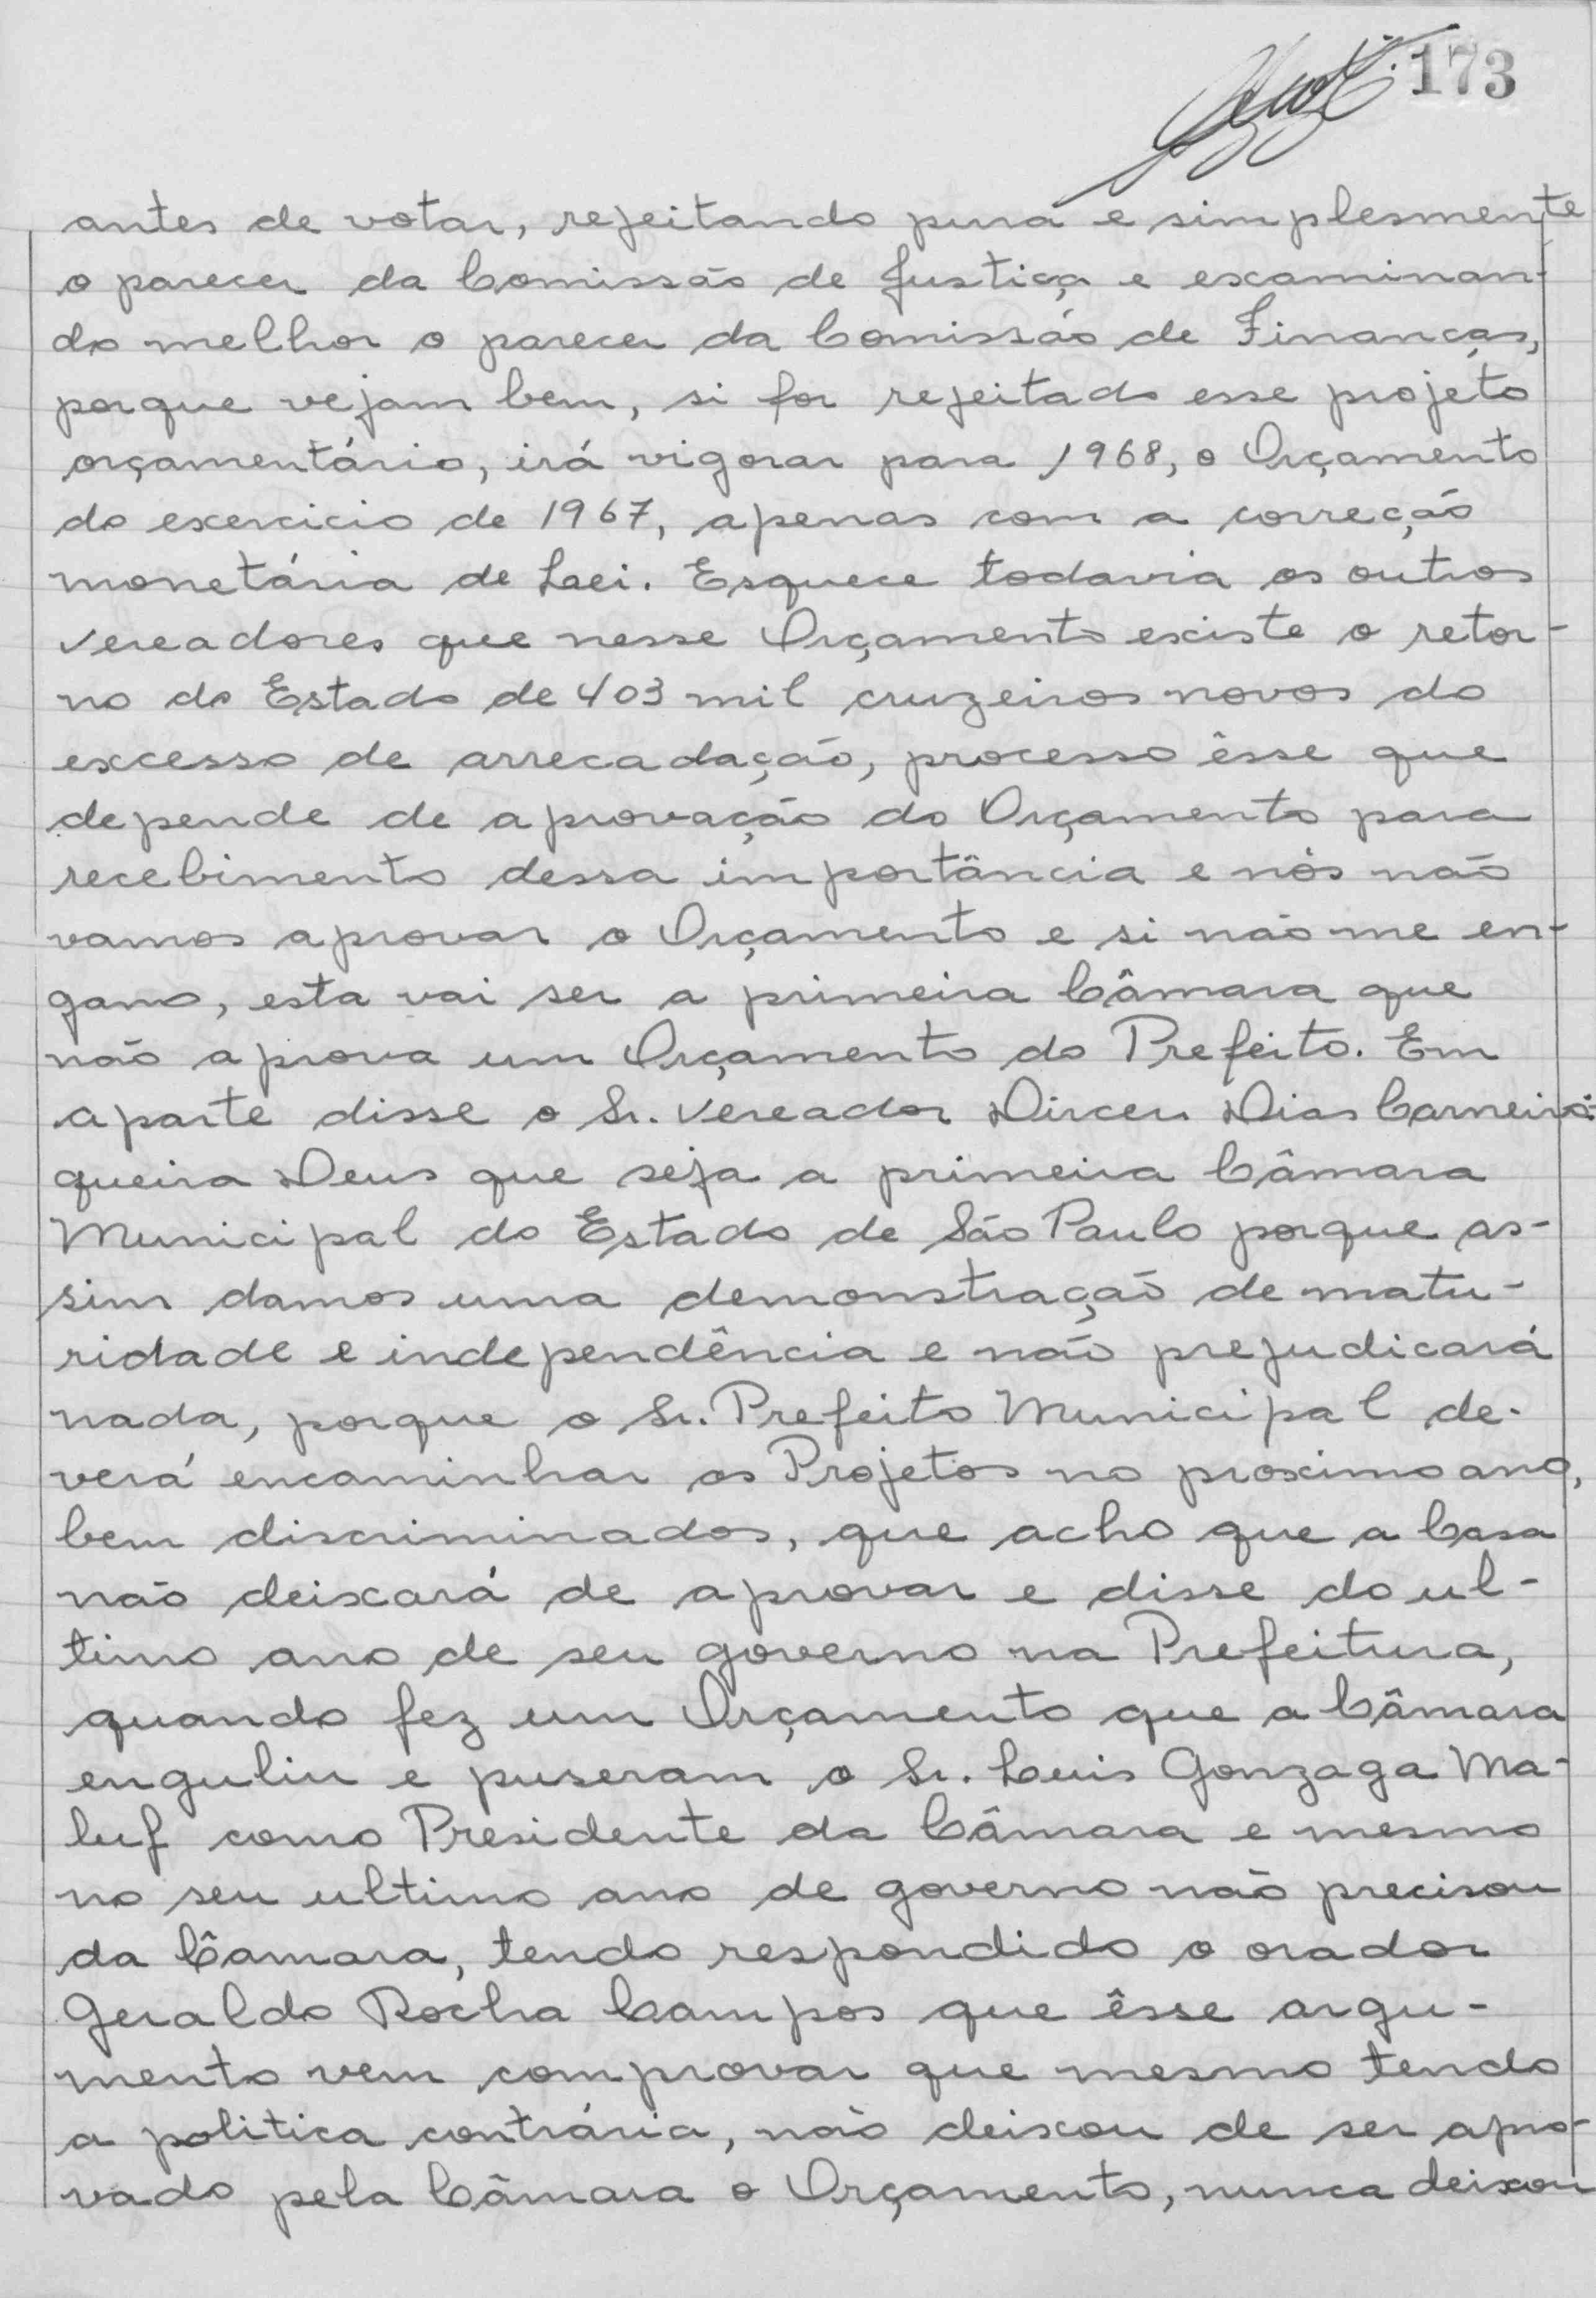 173
antes de votar, rejeitando pura e simplesmente
o parecer da Comissão de Justiça e examinan-
do melhor o parecer da Comissão de Finanças,
porque vejam bem, si for rejeitado esse projeto
orçamentário, irá vigorar para 1968, o Orçamento
do exercicio de 1967, apenas com a correção
monetária de Lei. Esquece todavia os outros
vereadores que nesse Orçamento existe o retor-
no do Estado de 403 mil cruzeiros novos do
excesso de arrecadação, processo êsse que
depende de aprovação do Orçamento para
recebimento dessa importância e nós não
vamos aprovar o Orçamento e si não me en-
gano, esta vai ser a primeira Câmara que
não aprova um Orçamento do Prefeito. Em
aparte disse o Sr. Vereador Dirceu Dias Carneiro:
queira Deus que seja a primeira Câmara
Municipal do Estado de São Paulo porque as-
sim damos uma demonstração de matu-
ridade e independência e não prejudicará
nada, porque o Sr. Prefeito Municipal de-
verá encaminhar os Projetos no proximo ano,
bem discriminados, que acho que a Casa
não deixará de aprovar e disse do ul-
timo ano de seu governo na Prefeitura,
quando fez um Orçamento que a Câmara
enguliu e puseram o Sr. Luis Gonzaga Ma-
luf como Presidente da Câmara e mesmo
no seu ultimo ano de governo não precisou
da Câmara, tendo respondido o orador
Geraldo Rocha Campos que êsse argu-
mento vem comprovar que mesmo tendo
a politica contrária, não deixou de ser apro-
vado pela Câmara o Orçamento, nunca deixou